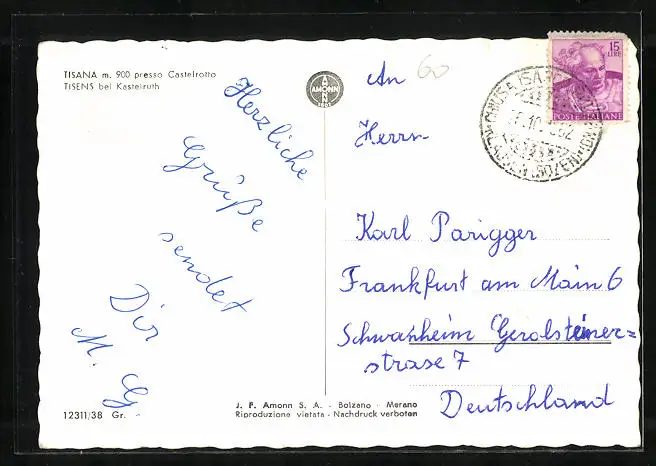 TISANA m. 900 presso Castelrotto
TISENS bei Kastelruth
AMONN
Herzliche
Grüße
sendet
Dir
M. G.
An
60
Herrn
Karl Parigger
Frankfurt am Main 6
Schwanheim Gerolsteiner=
strase 7
Deutschland
15
LIRE
POSTE ITALIANE
12311/38 Gr.
J. F. Amonn S. A. - Bolzano - Merano
Riproduzione vietata - Nachdruck verboten